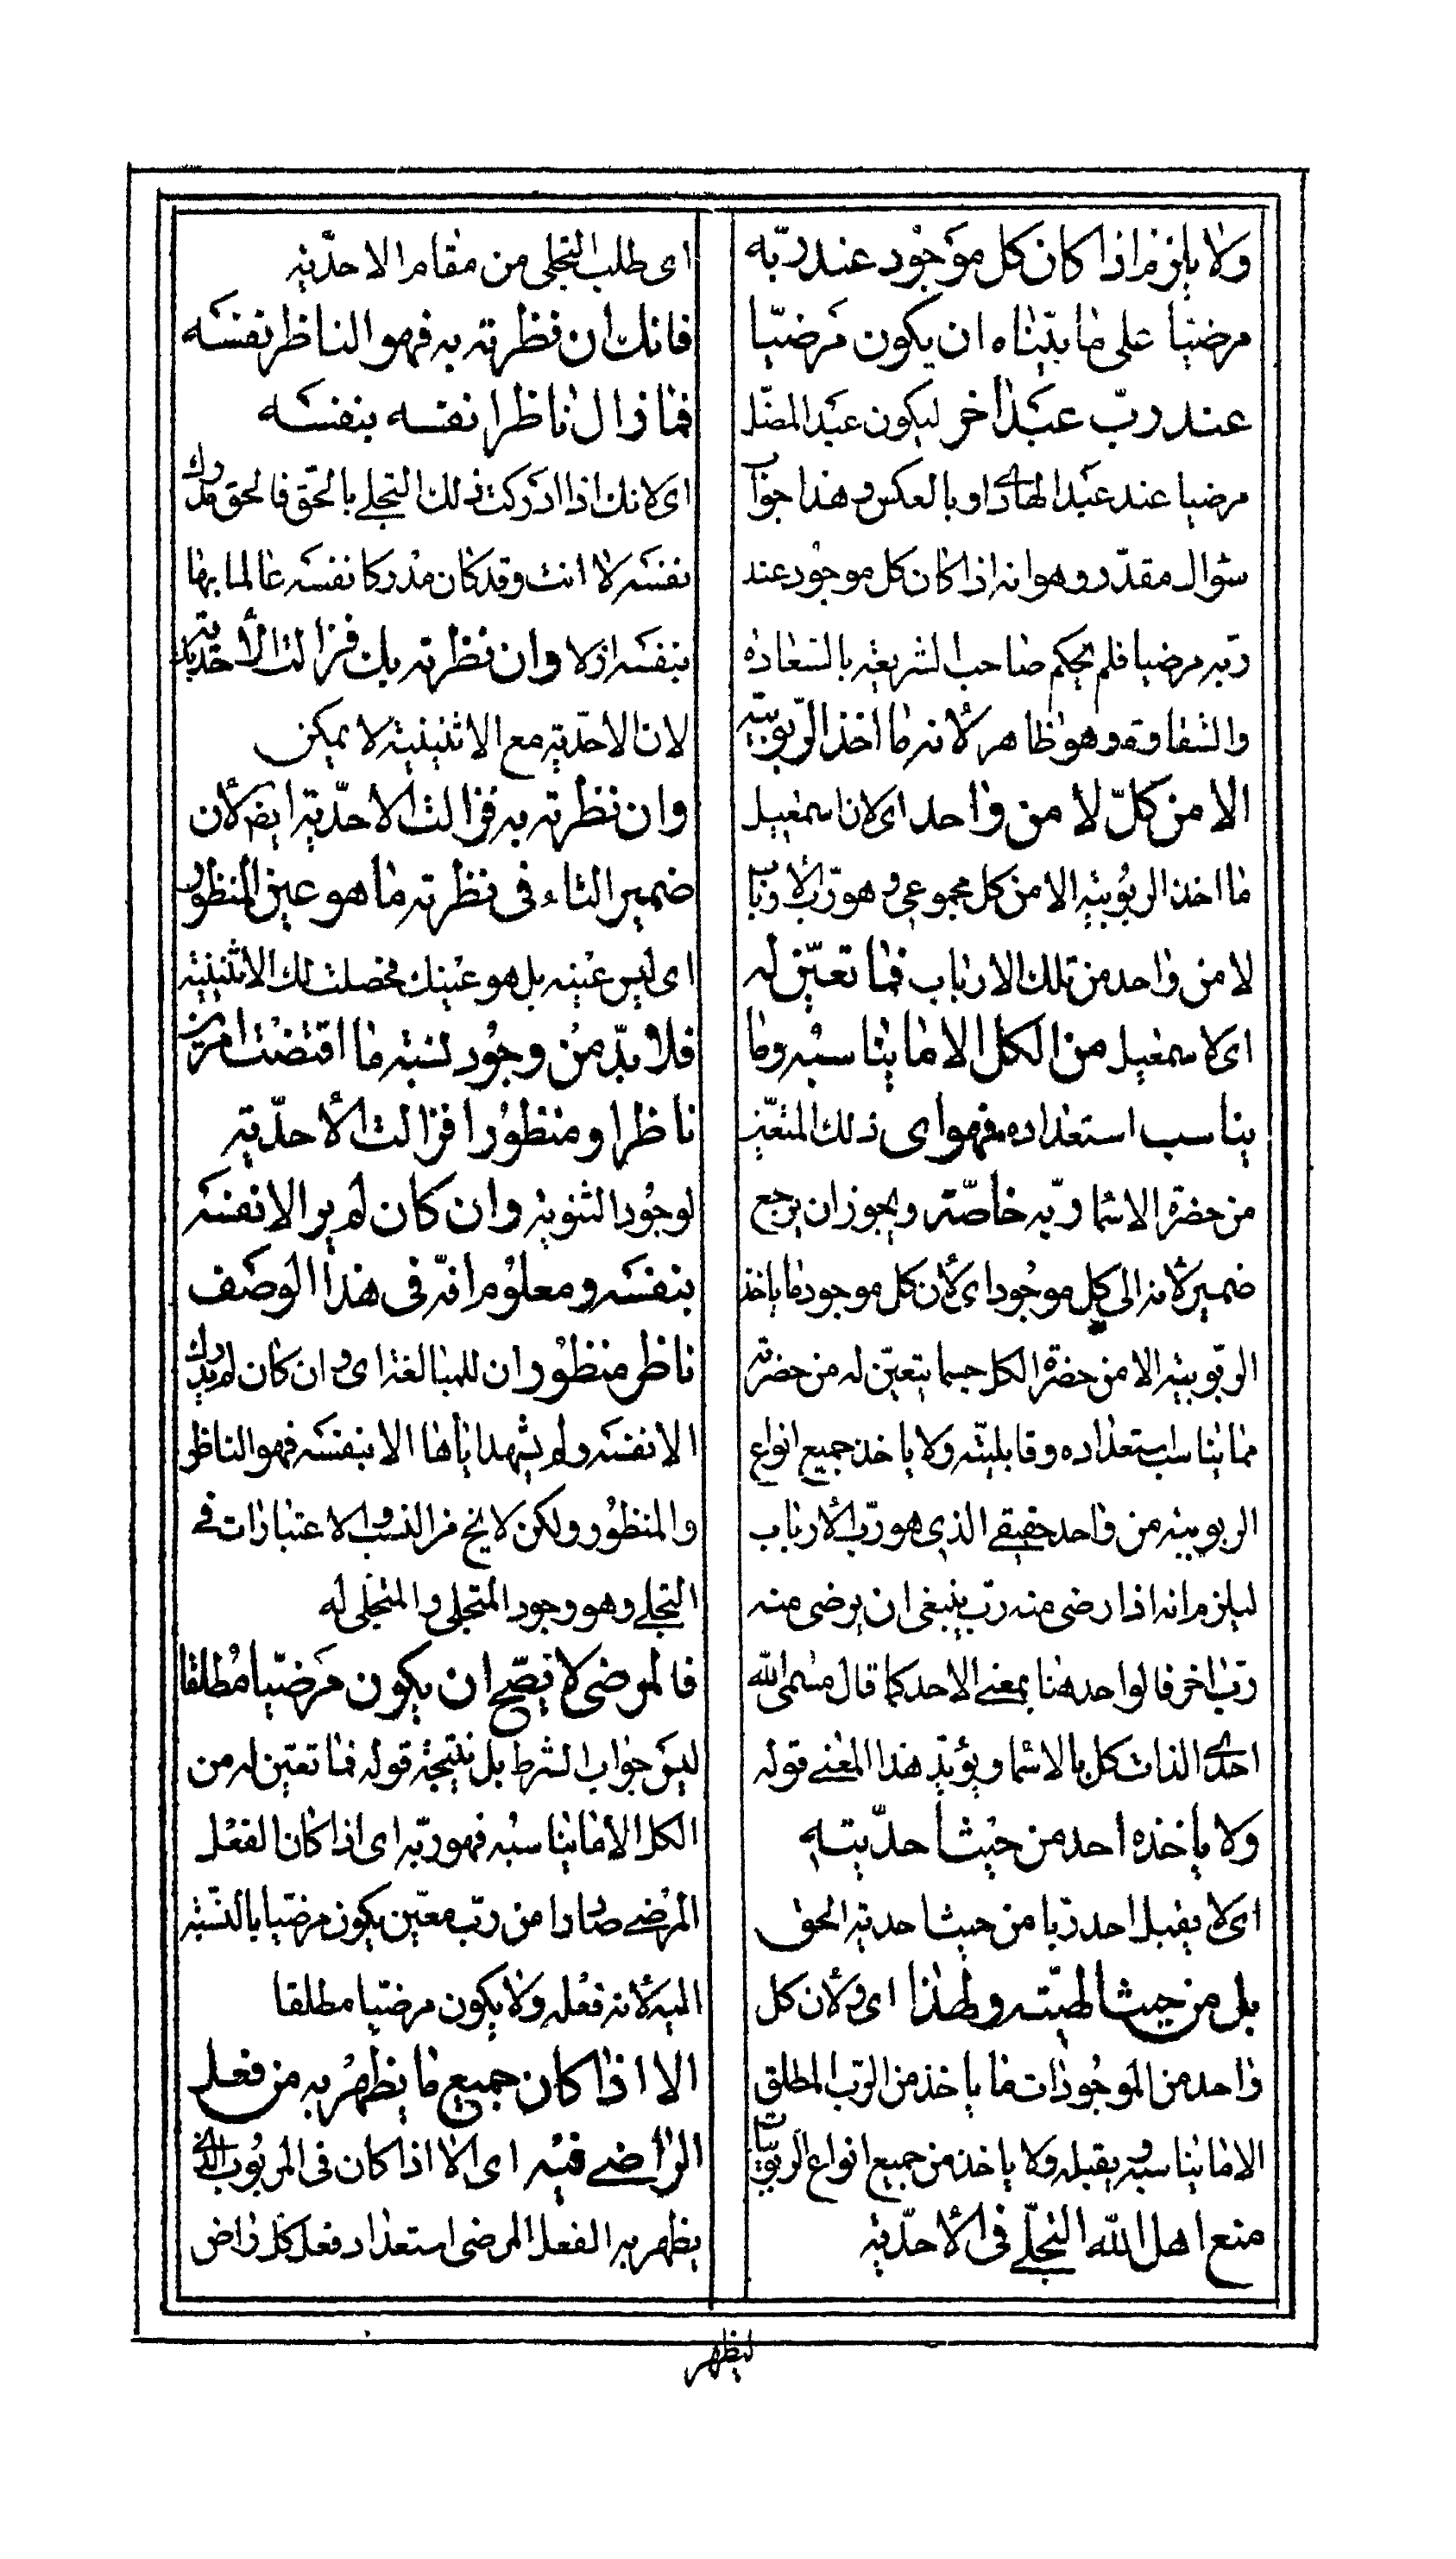 ولا يلزم اذا كان كل موجود عند ربه
مرضيا على ما بيناه ان يكون مرضيا
عند رب عبد اخر ليكون عبد المضل
مرضيا عند عبد الهادى او بالعكس وهذا جواب
سؤال مقدر وهو انه اذا كان كل موجود عند
ربه مرضيا فلم يحكم صاحب الشريعة بالسعادة
والشقاوة وهو ظاهر لأنه ما اخذ الربوبية
الا من كل لا من واحد اى لان اسمعيل
ما اخذ الربوبية الا من كل مجموعى وهو رب الارباب
لا من واحد من تلك الارباب فما تعين له
اى لاسمعيل من الكل الا ما يناسبه وما
يناسب استعداده فهو اى ذلك المتعين
من حضرة الاسما ربه خاصة ويجوز ان يرجع
ضمير لأنه الى كل موجود اى لأن كل موجود ما ياخذ
الربوبية الا من حضرة الكل حسبما يتعين له من حضرته
مما يناسب استعداده وقابليته ولا ياخذ جميع انواع
الربوبية من واحد حقيقى الذى هو رب الأرباب
ليلزم انه اذا رضى منه رب ينبغى ان يرضى منه
رب اخر فالواحد هنا بمعنى الاحد كما قال مسمى الله
احدى الذات كل بالاسما ويؤيد هذا المعنى قوله
ولا يأخذه أحد من حيث أحديته
اى لا يقبل احد ربا من حيث احدية الحق
بل من حيث الهيته ولهذا اى ولأن كل
واحد من الموجودات ما ياخذ من الرب المطلق
الا ما يناسبه ويقبله ولا ياخذ من جميع انواع الربوبيات
منع اهل الله التجلى فى الأحدية
اى طلب التجلى من مقام الاحدية
فانك ان نظرته به فهو الناظر نفسه
فما زال ناظرا نفسه بنفسه
اى لانك اذا ادركت ذلك التجلى بالحق فالحق مدرك
نفسه لا انت وقد كان مدركا نفسه عالما بها
بنفسه ازلا وان نظرته بك فزالت الأحدية بك
لان الاحدية مع الاثنينية لا يمكن
وان نظرته به فزالت الاحدية ايضا لأن
ضمير التاء فى نظرته ما هو عين المنظور
اى ليس عينه بل هو عينك فحصلت لك الاثنينية
فلا بد من وجود نسبة ما اقتضت امرين
ناظرا ومنظورا فزالت الأحدية
لوجود الثنوية وان كان لم ير الا نفسه
بنفسه ومعلوم انه فى هذا الوصف
ناظر منظور ان للمبالغة اى وان كان لم يدرك
الا نفسه ولم يشهد اياها الا بنفسه فهو الناظر
والمنظور ولكن لا يخ من النسب والاعتبارات فى
التجلى وهو وجود المتجلى والمتجلى له
فالمرضى لا يصح ان يكون مرضيا مطلقا
ليس جواب الشرط بل نتيجة قوله فما تعين له من
الكل الا ما يناسبه فهو ربه اى اذا كان الفعل
المرضى صادرا من رب معين يكون مرضيا بالنسبة
اليه لأنه فعله ولا يكون مرضيا مطلقا
الا اذا كان جميع ما يظهر به من فعل
الراضى فيه اى الا اذا كان فى المربوب الذى
يظهر به الفعل المرضى استعداد فعل كل راض
ليظهر